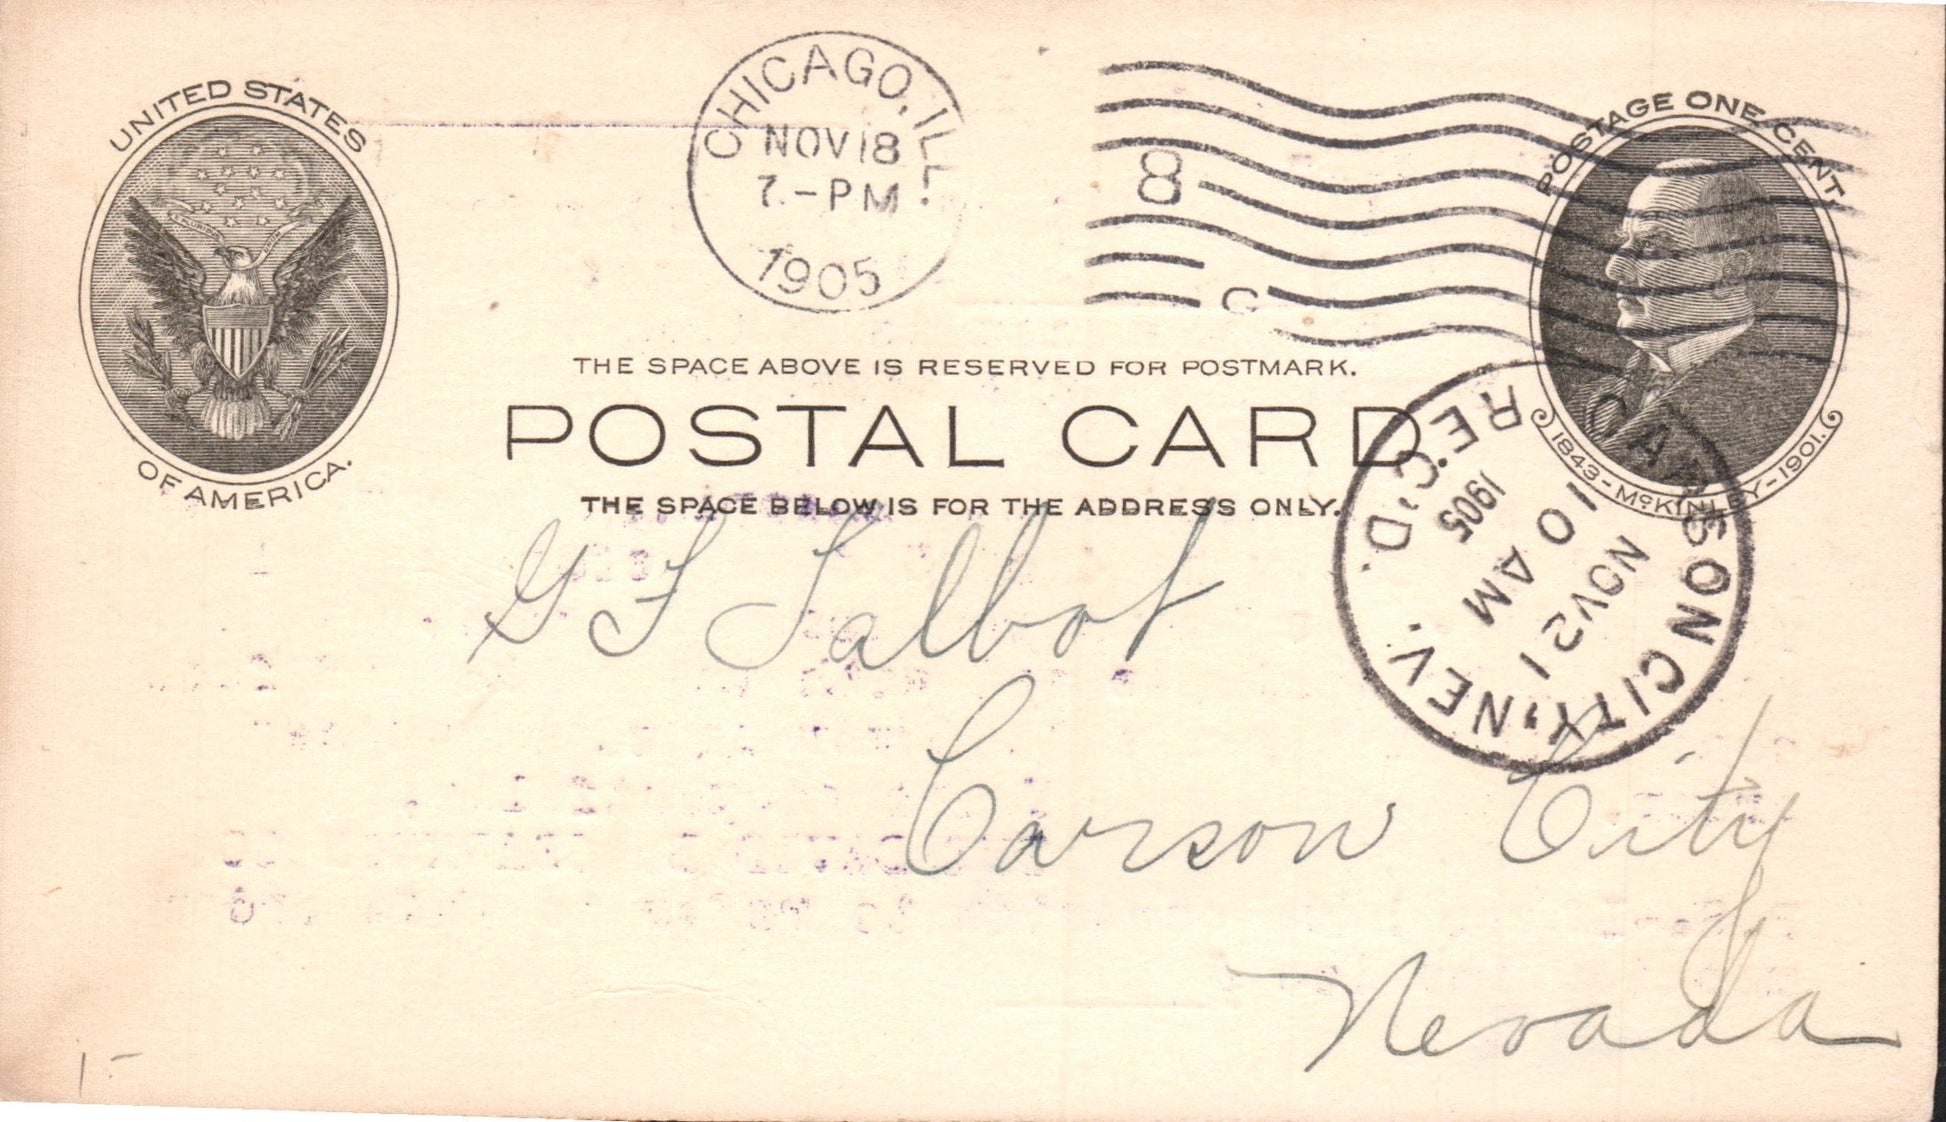 UNITED STATES
OF AMERICA.
CHICAGO, ILL.
NOV 18
7-PM
1905
8
C
POSTAGE ONE CENT
1843-McKINLEY-1901.
THE SPACE ABOVE IS RESERVED FOR POSTMARK.
POSTAL CARD
THE SPACE BELOW IS FOR THE ADDRESS ONLY.
CARSON CITY, NEV.
NOV 21
10 AM
1905
REC'D.
G F Talbot
Carson City
Nevada
1-